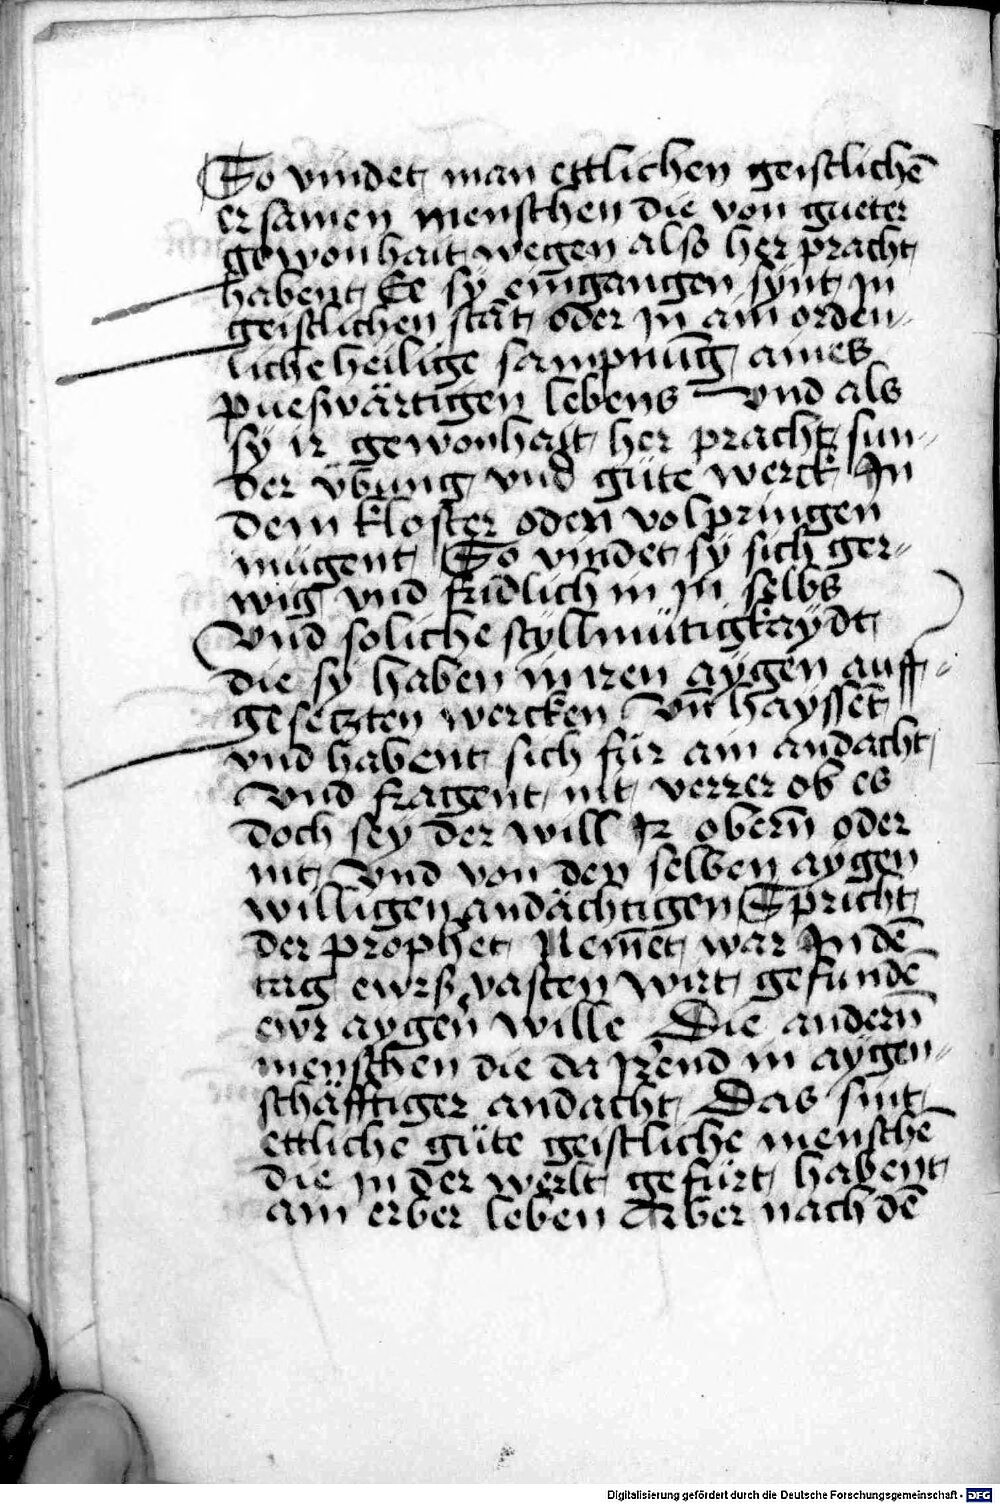 So vindet man ettlichen geistlichē
ersamen menschen die von gueter
gewonhait wegen also her pracht
habent Ee sy eīngangen synt in
geistlichen stāt oder in ain orden-
liche heilige sampnūg aines
pueswärtigen lebens Vnd als
sy ir gewonhait her pracht sun-
der übung vnd güte werck In
dem kloster oden volpringen
mügent So vindet sy sich ger-
wig vnd fridlich in in selbs
Vnd soliche styllmütigkaydt
die sy haben in iren aygen auff-
gesetzten wercken Vn̄ haysset
vnd habent sich für ain andacht
Vnd fragent nit verrer ob es
doch sey der will Ir obern̄ oder
nit Vnd von den selben aygen
willigen andächtigen Spricht
der prophet Nem̄et war In dē
tag ewrs vasten wirt gefundē
ewr aygen̄ wille Die andern̄
menschen die da Irend in aygen-
schäfftiger andacht Das sint
ettliche güte geistliche menschē
die in der werlt gefürt habent
ain erber leben Aber nach dē
Digitalisierung gefördert durch die Deutsche Forschungsgemeinschaft - DFG